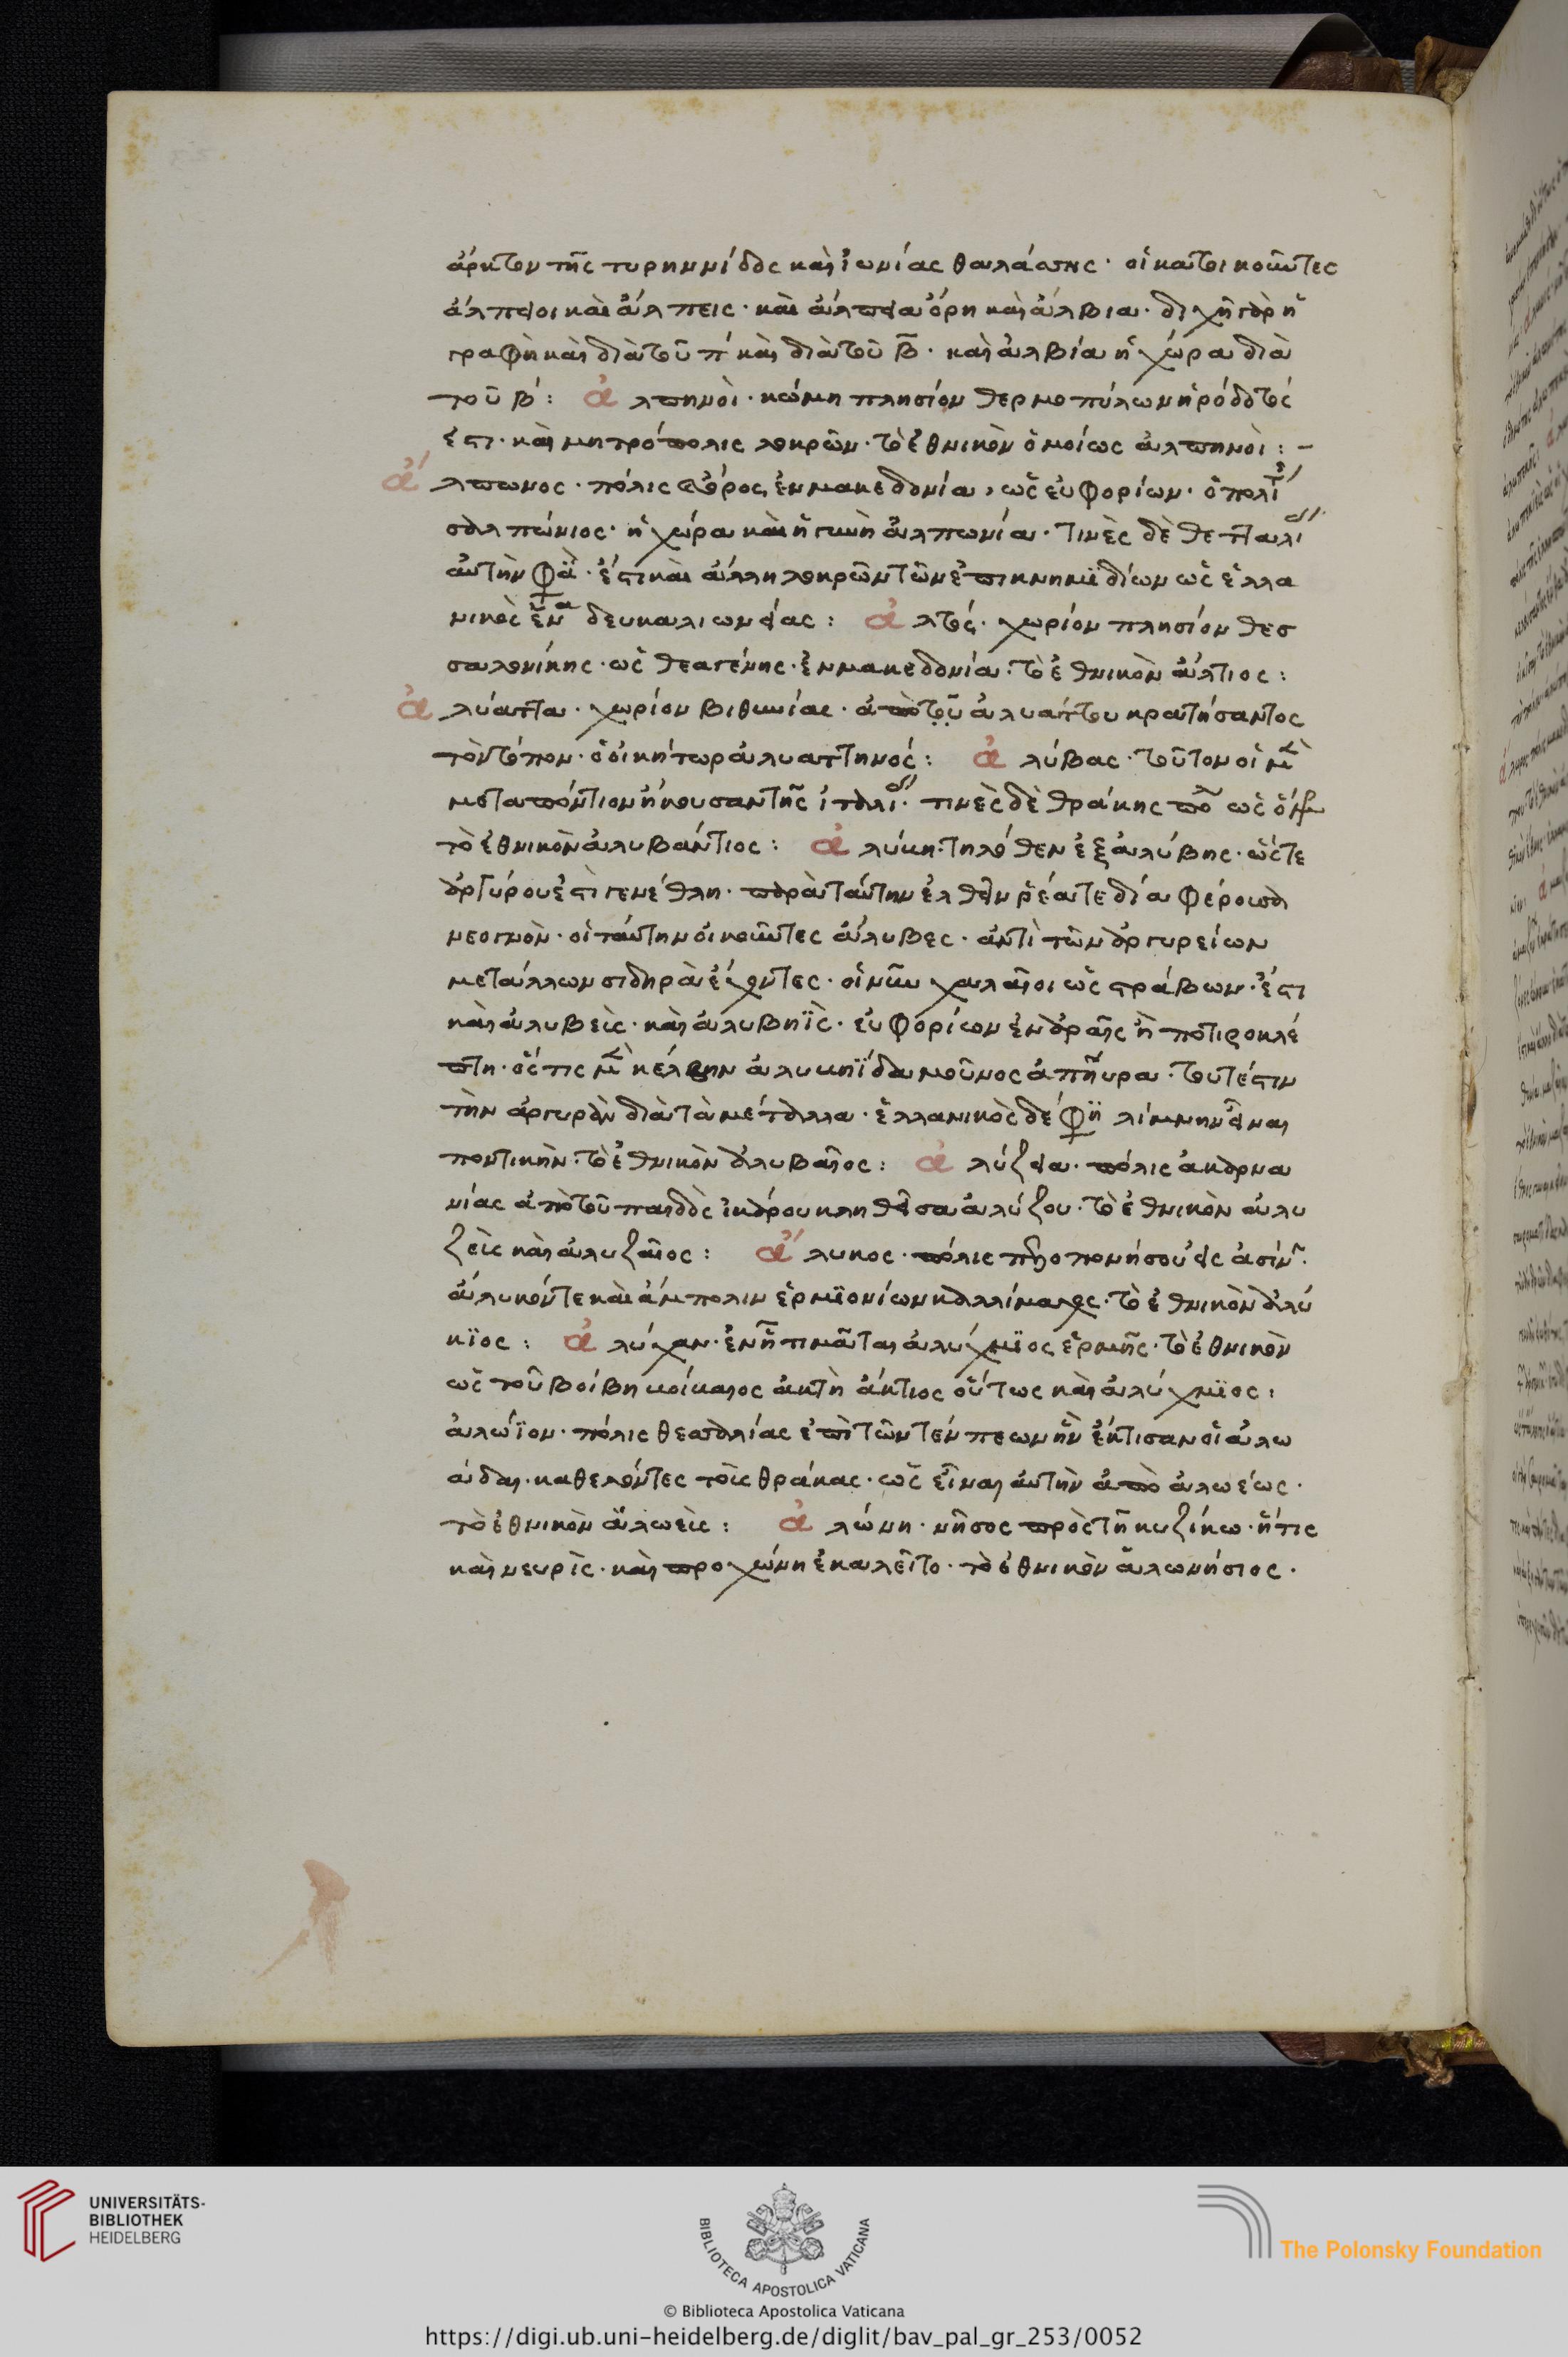 ἄρκτον τῆς τυρηννίδος καὶ ἰωνίας θαλάσσης· οἱ κατοικοῦντες
ἄλπειοι καὶ ἄλπεις· καὶ ἄλπεια ὄρη καὶ ἄλβια· διχῆ γὰρ ἡ
γραφὴ καὶ διὰ τοῦ π καὶ διὰ τοῦ β· καὶ ἀλβία ἡ χώρα διὰ
τοῦ β: ἀλπηνοὶ· κώμη πλησίον θερμοπύλων ἡρόδοτος
ἔστι· καὶ μητρόπολις λοκρῶν· τὸ ἐθνικὸν ὁμοίως ἀλπηνοὶ:-
ἄλπωνος· πόλις ὄρος ἐν μακεδονία, ὡς εὐφορίων· ὁ πολί
σαλπώνιος· ἡ χώρα καὶ ἡ γυνὴ ἀλπωνία· τινὲς δὲ θετταλι
αὐτὴν φα· ἔστι καὶ ἄλλη λοκρῶν τῶν ἐπικνημιδίων ὡς ἑλλα
νικὸς ἐν α δευκαλιωνείας: ἀλτός· χωρίον πλησίον θεσ
σαλονίκης· ὡς θεαγένης· ἐν μακεδονία· τὸ ἐθνικὸν ἄλτιος:
ἀλύαττα· χωρίον βιθυνίας· ἀπὸ τοῦ ἀλυάττου κρατήσαντος
τὸν τόπον· ὁ οἰκήτωρ ἀλυαττηνός: ἀλύβας· τοῦτον οἱ μὲν
μεταπόντιον ἤκουσαν τῆς ἰταλι· τινὲς δὲ θράκης πο ὡς ὅμ
τὸ ἐθνικὸν ἀλυβάντιος: ἀλύκη· τηλόθεν ἐξ ἀλύβης· ὥστε
ἀργύρου ἐστὶ γενέθλη· παρὰ ταύτην ἐλθεῖν ῥέα τε δία φέρουσα
νεογνὸν· οἱ ταύτην οἰκοῦντες ἄλυβες· ἀντὶ τῶν ἀργυρείων
μετάλλων σιδηρὰ ἔχοντες· οἱ νῦν χαλαῖοι ὡς στράβων· ἔστι
καὶ ἀλυβεὶς· καὶ ἀλυβηῒς· εὐφορίων ἐν ἀραῖς ἢ ποτιροκλέ
πτη· ὅστις μὲν κελβην ἀλυκηΐδα μοῦνος ἀπηύρα· τουτέστιν
τὴν ἀργυρᾶν διὰ τὰ μέταλλα· ἑλλανικὸς δέ φη λίμνην εἶναι
ποντικὴν· τὸ ἐθνικὸν ἀλυβαῖος: ἀλύζεια· πόλις ἀκαρνα
νίας ἀπὸ τοῦ παιδὸς ἰκάρου κληθεῖσα ἀλύζου· τὸ ἐθνικὸν ἀλυ
ζεὶς καὶ ἀλυζαῖος: ἄλυκος· πόλις πελοπονήσου εἰς ἀσίν·
ἄλυκόν τε καὶ ἀμπολιν ἑρμιονίων καλλίμαχος· τὸ ἐθνικὸν ἀλύ
κιος: ἀλύχαν· ἐν ᾗ τιμᾶται ἀλύχμιος ἑρμῆς· τὸ ἐθνικὸν
ὡς τοῦ βοίβη κοίκαιος ἀκτὴ ἄκτιος οὕτως καὶ ἀλύχμιος:
ἀλώϊον· πόλις θεσσαλίας ἐπὶ τῶν τέμπεων ἣν ἔκτισαν οἱ ἀλω
άδαι· καθελόντες τοὺς θράκας· ὡς εἶναι αὐτὴν ἀπὸ ἀλωέως·
τὸ ἐθνικὸν ἀλωεὶς: ἀλώνη· νῆσος πρὸς τῆ κυζίκω· ἥτις
καὶ νευρὶς· καὶ προχώνη ἐκαλεῖτο· τὸ ἐθνικὸν ἀλωνήσιος·
UNIVERSITÄTS-
BIBLIOTHEK
HEIDELBERG
BIBLIOTECA APOSTOLICA VATICANA
The Polonsky Foundation
© Biblioteca Apostolica Vaticana
https://digi.ub.uni-heidelberg.de/diglit/bav_pal_gr_253/0052